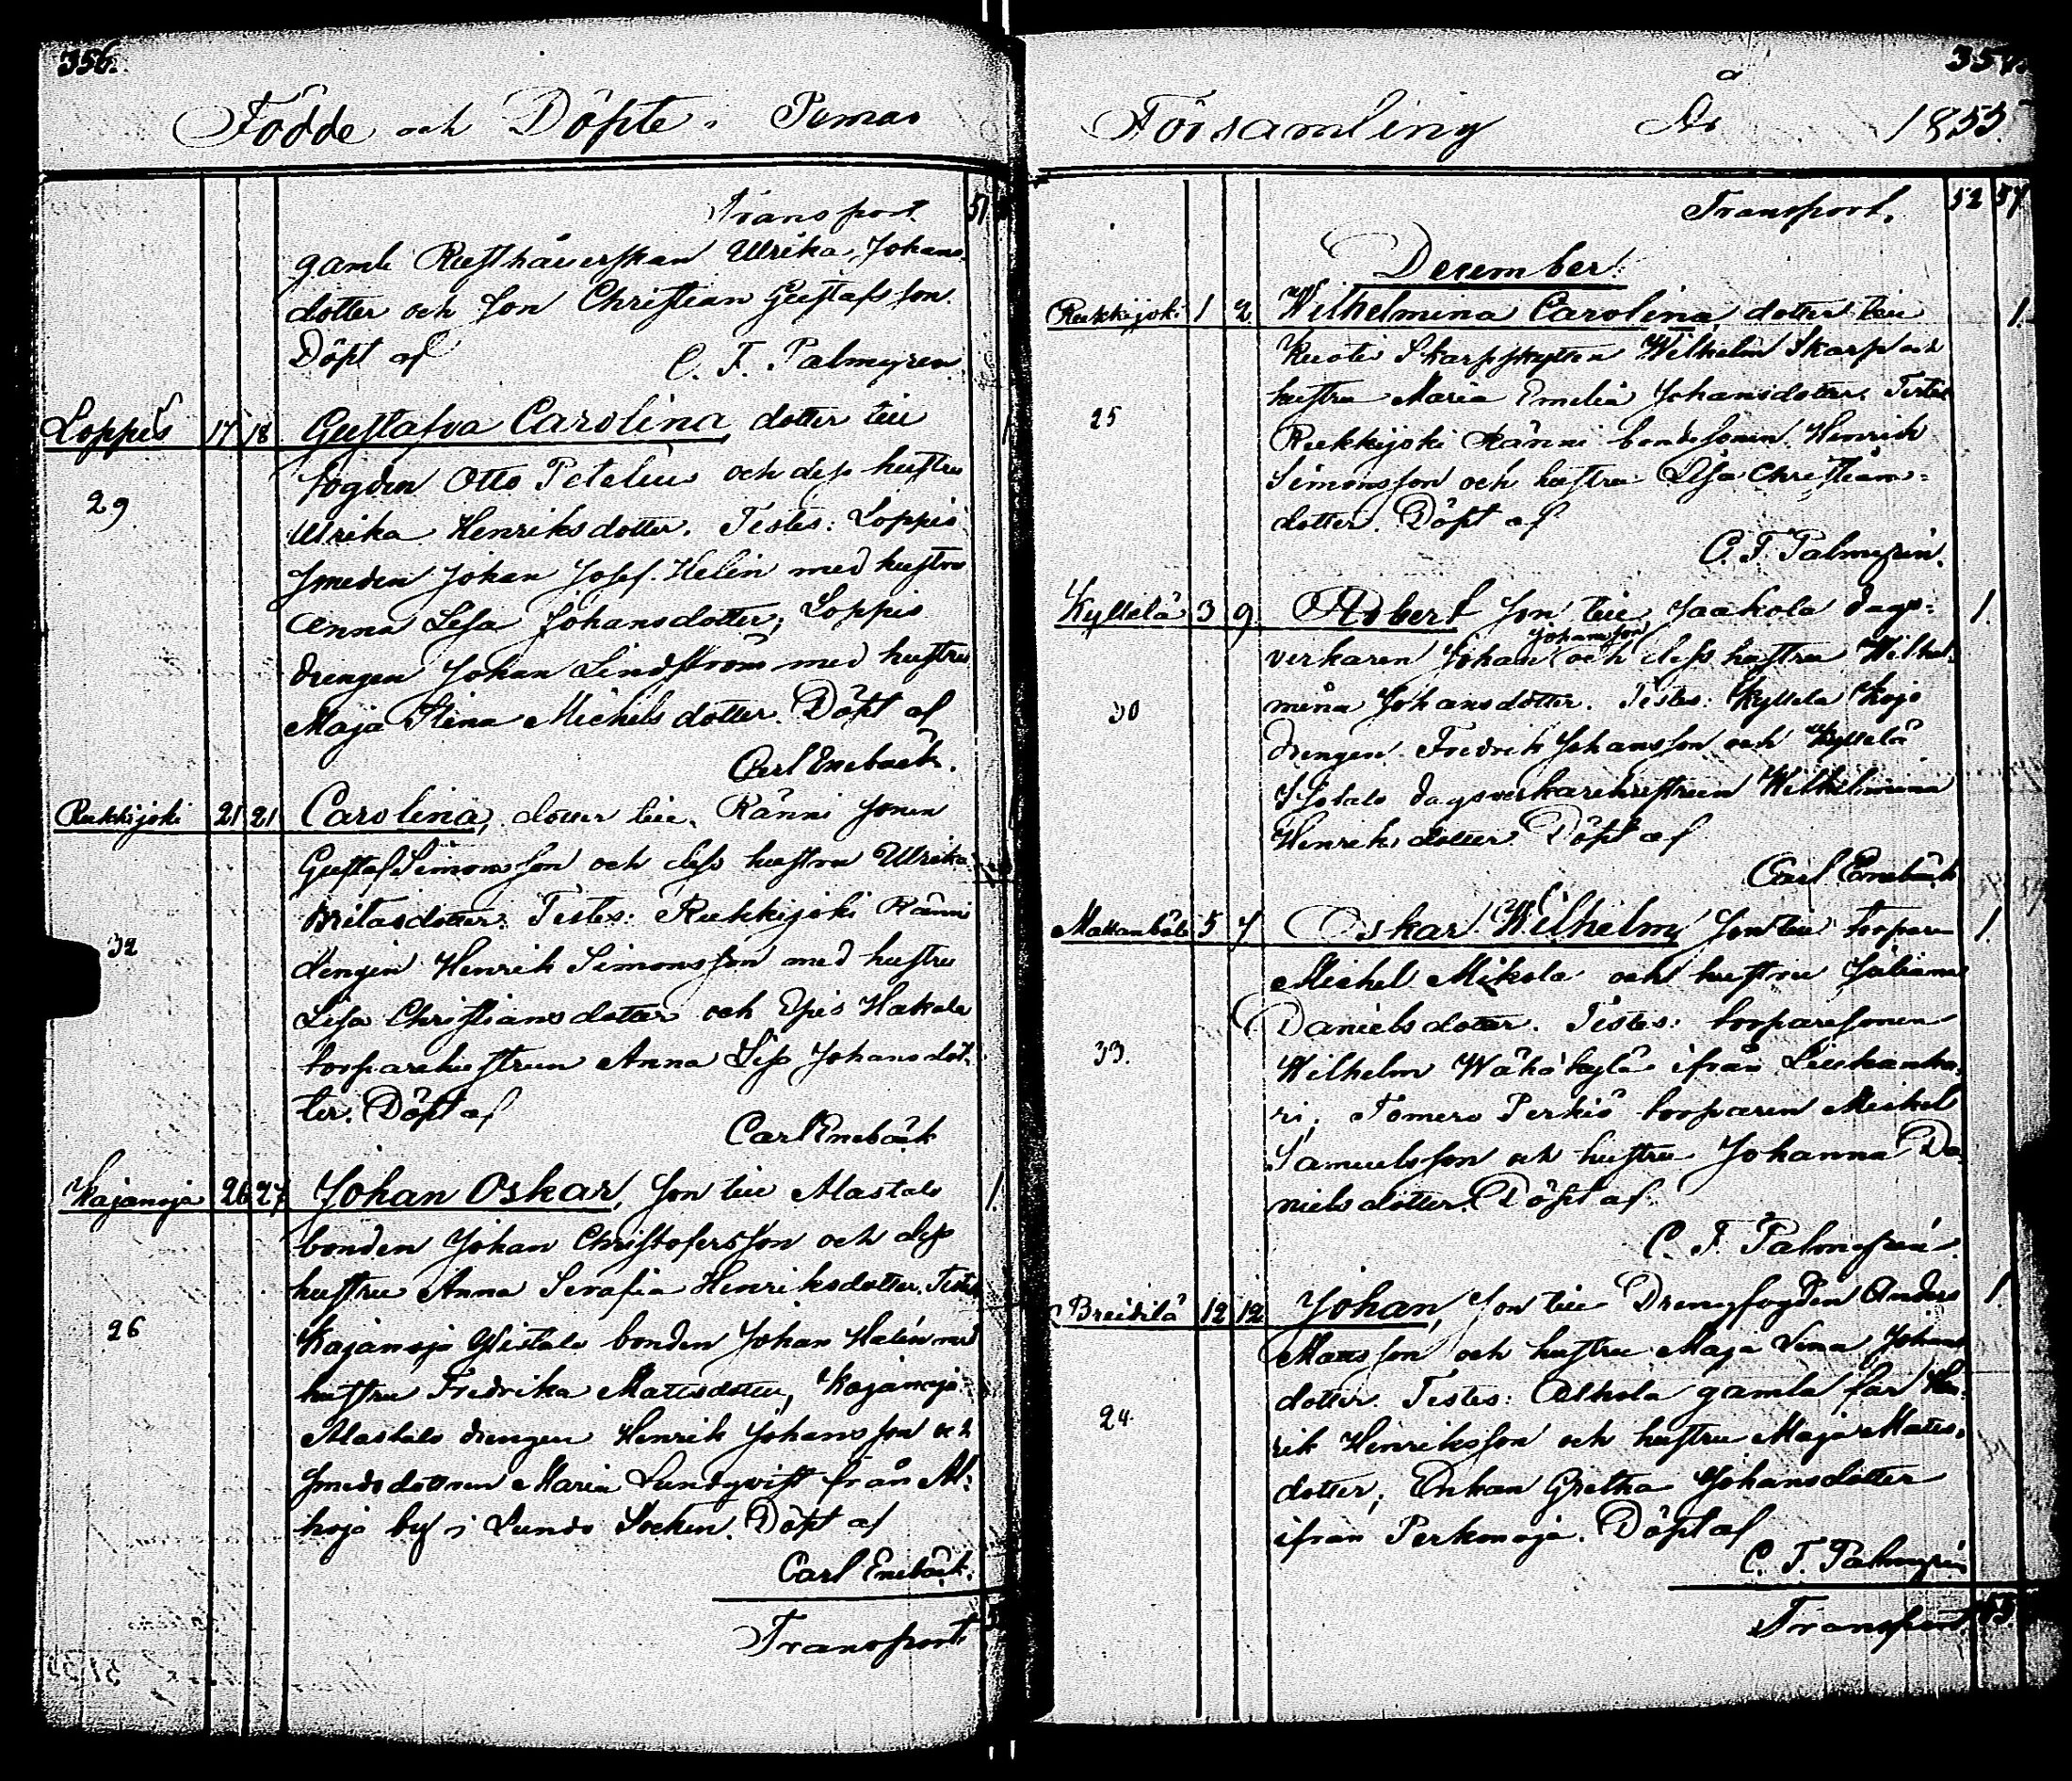 356.
Födde och Döpte i Pemar
Transport 51
gamle Rusthållerskan Ulrika Johans-
dotter och son Christian Gustafsson.
Döpt af C. F. Palmgren
Loppis 17 18 Gustafva Carolina dotter till
fogden Otto Petelius och dess hustru
29
Ulrika Henriksdotter. Testes: Loppis
smeden Johan Josef Helin med hustru
Anna Lisa Johansdotter; Loppis
drengen Johan Lindström med hustru
Maja Stina Michelsdotter. Döpt af
Carl Enebäck.
Rukkijoki 21 21 Carolina, dotter till Ränni sonen
Gustaf Simonsson och dess hustru Ulrika
Britasdotter. Testes: Rukkijoki Ränni
32
drengen Henrik Simonsson med hustru
Lisa Christiansdotter och Hakala
torparehustrun Anna Lisa Johansdot-
ter. Döpt af
Carl Enebäck
Kajanoja 26 27 Johan Oskar, son till Alastalo 1.
bonden Johan Christofersson och dess
hustru Anna Serafia Henriksdotter. Testes
26
Kajanoja Ylistalo bonden Johan Helin med
hustru Fredrika Mattsdotter, Kajanoja
Alastalo drengen Henrik Johansson och
smedsdottren Maria Lundqvist från
by i Lundo Socken. Döpt af
Carl Enebäck.
Transport
357.
Församling År 1855.
Transport. 52 57
December.
Rukkijoki 1 2 Wilhelmina Carolina dotter till 1.
Skarpskytten Wilhelm Skarp och
hustru Maria Emilia Johansdotter. Testes
25
Rukkijoki Ränni bondesonen Henrik
Simonsson och hustru Lisa Christians-
dotter. Döpt af
C. F. Palmgren.
Kyttelä 3 9 Robert son till Jaakola dags- 1.
Johansson
verkaren Johan och dess hustru Wilhel-
30
mina Johansdotter. Testes: Kyttelä
drengen Fredrik Johansson och Kyttelä
dagsverkarehustrun Wilhelmina
Henriksdotter. Döpt af
Carl Enebäck
5 7 Oskar Wilhelm, son till torparen 1.
Michel Mikola och hustru Juliana
Danielsdotter. Testes: torparesonen
33.
Wilhelm Wähäkylä ifrån
ri; Perkiö torparen Michel
Samuelsson och hustru Johanna Da-
nielsdotter. Döpt af
C. F. Palmgren
12 12 Johan, son till Drengfogden Anders 1.
Mattsson och hustru Maja Lena Johans
24.
dotter. Testes: gamla far Hen-
rik Henriksson och hustru Maja Matts-
dotter; Enkan Gretha Johansdotter
ifrån Döpt af
C. F. Palmgren
Transport